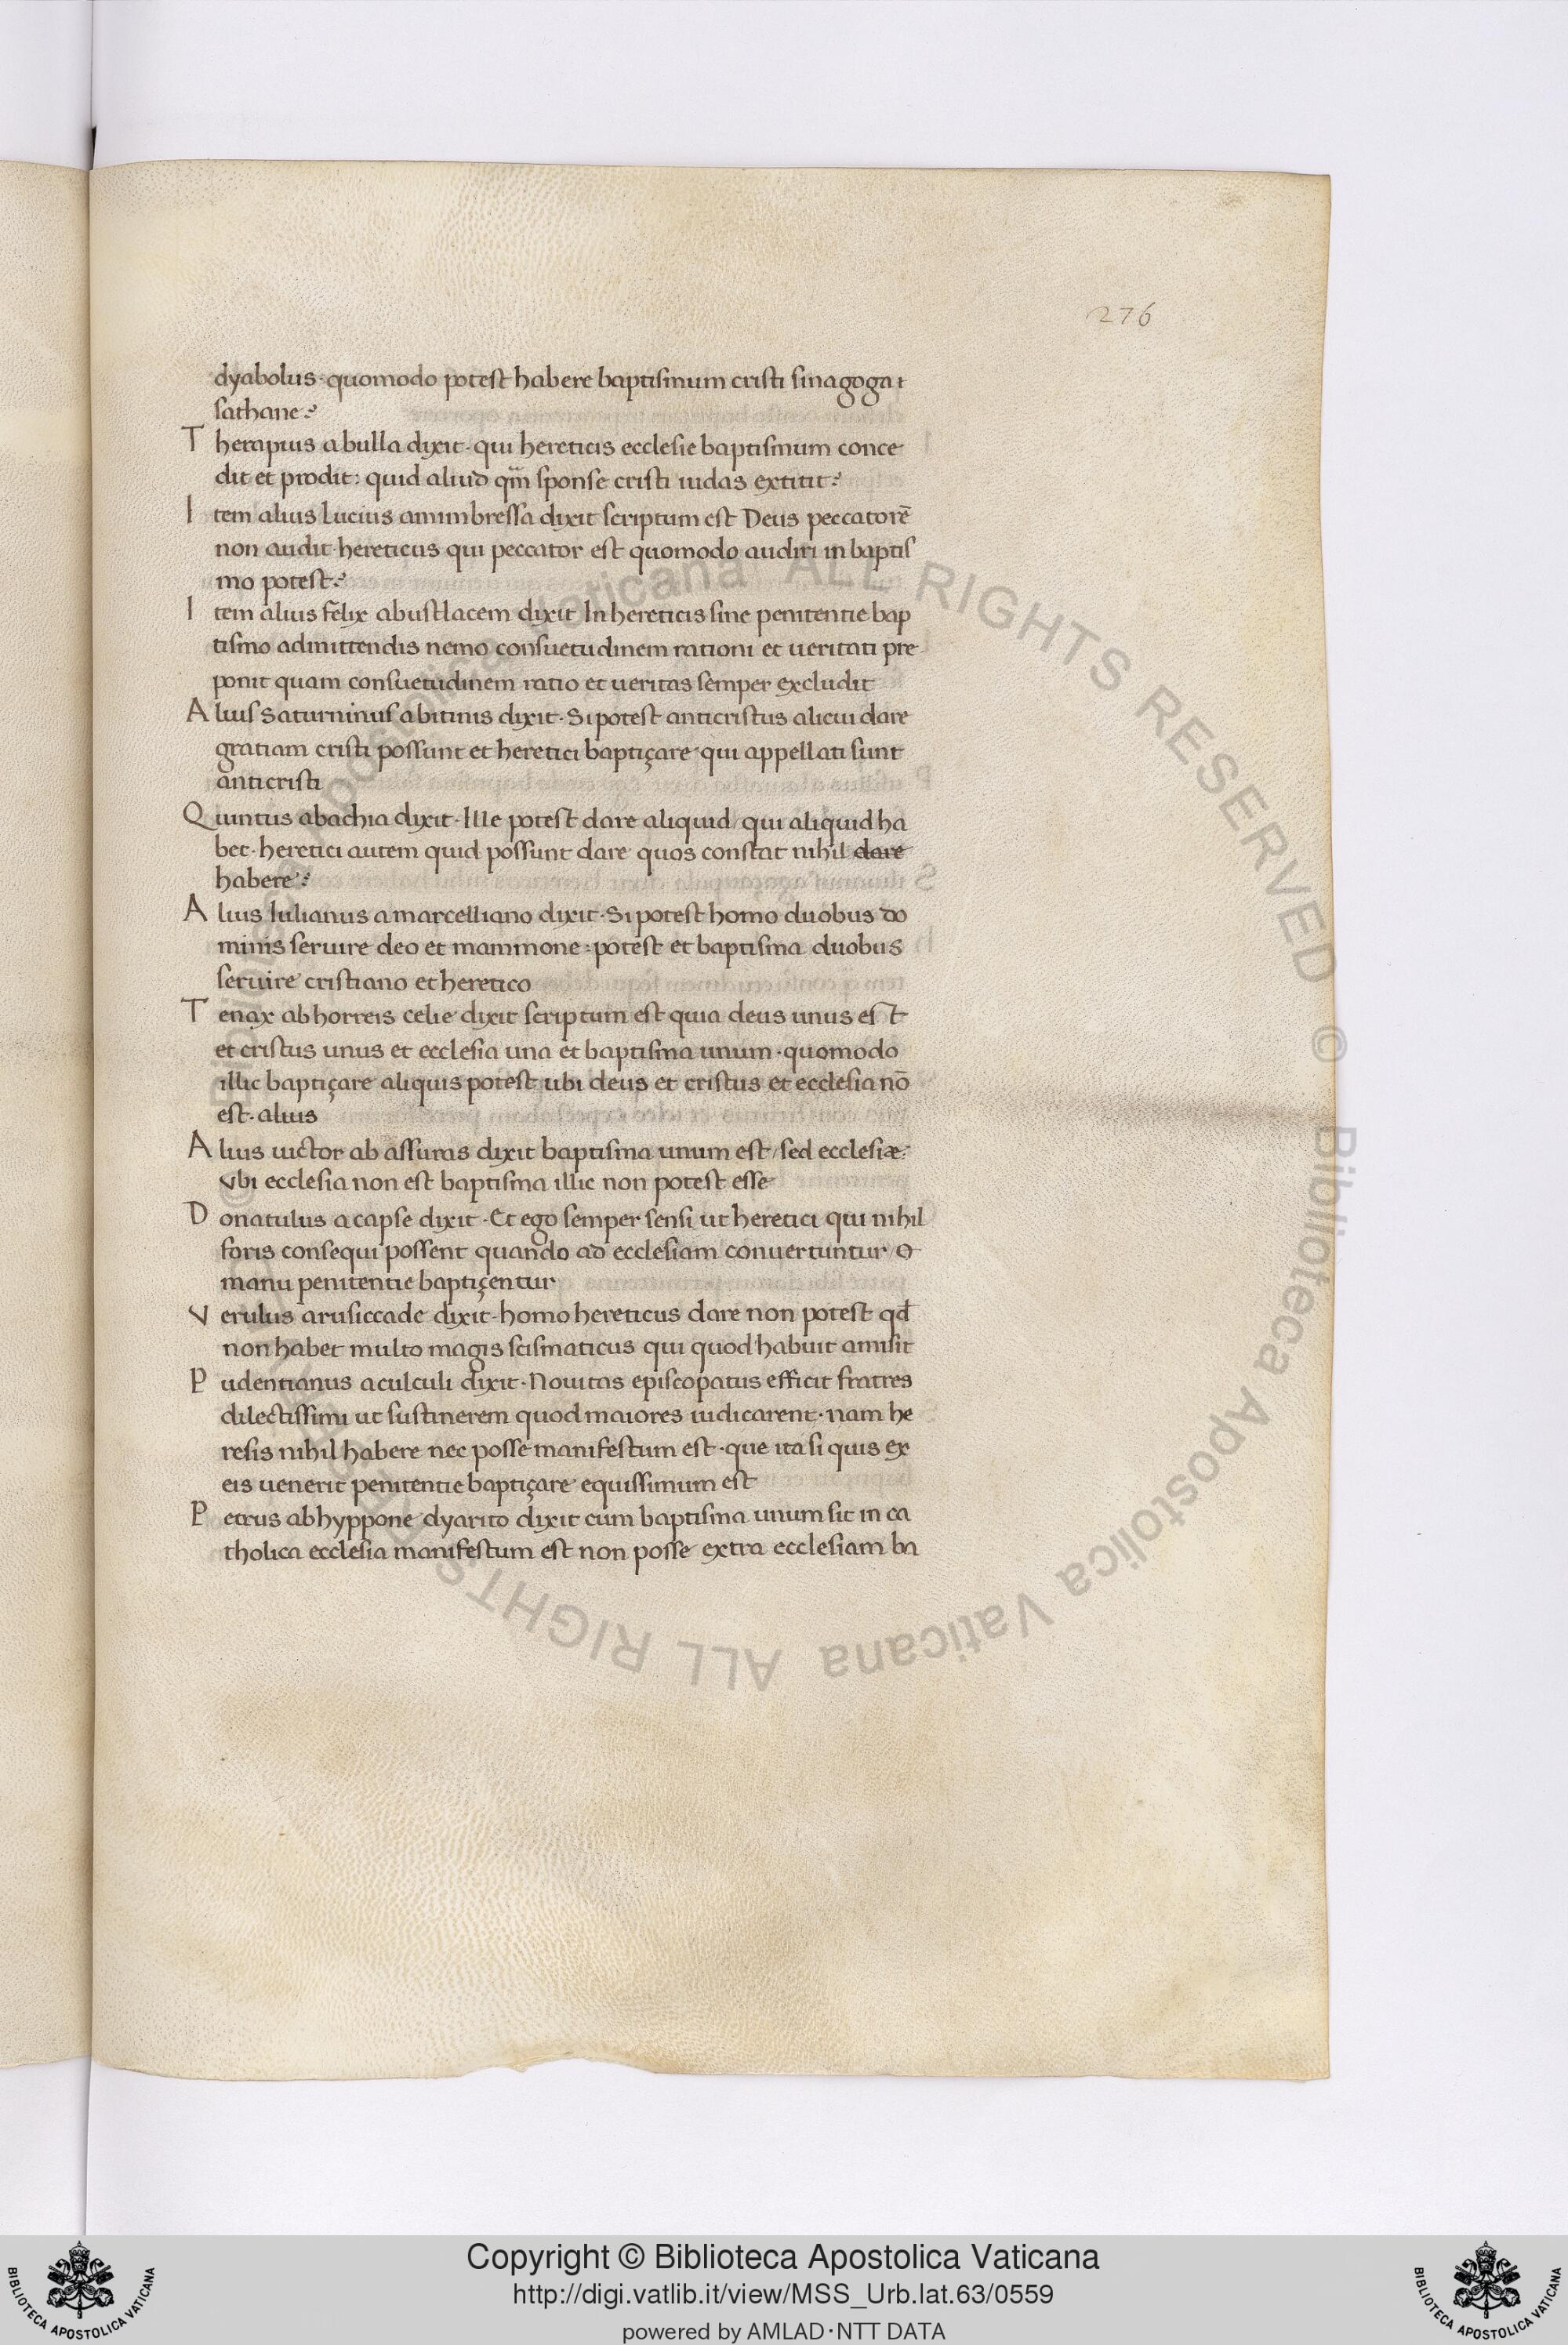 276
dyabolus · quomodo potest habere baptismum cristi sinagoga
sathane:
Therapius a bulla dixit · qui hereticis ecclesie baptismum conce
dit et prodit: quid aliud qm̄ sponse cristi iudas extitit:
Item alius Lucius amimbressa dixit scriptum est Deus peccatorē
non audit · hereticus qui peccator est quomodo audiri in baptis
mo potest:
Item alius felix abustlacem dixit In hereticis sine penitentie bap
tismo admittendis nemo consuetudinem rationi et ueritati pre
ponit quam consuetudinem ratio et ueritas semper excludit
Alius Saturninus abitinis dixit · Si potest anticristus alicui dare
gratiam cristi possunt et heretici baptiçare · qui appellati sunt
anticristi
Quintus abachia dixit · Ille potest dare aliquid / qui aliquid ha
bet · heretici autem quid possunt dare quos constat nihil dare
habere:
Alius Iulianus a marcelliano dixit · Si potest homo duobus do
minis seruire deo et mammone: potest et baptisma duobus
seruire cristiano et heretico
Tenax ab horreis celie dixit scriptum est quia deus unus est
et cristus unus et ecclesia una et baptisma unum · quomodo
illic baptiçare aliquis potest ubi deus et cristus et ecclesia nō
est · alius
Alius uictor ab assuras dixit baptisma unum est / sed ecclesiæ:
vbi ecclesia non est baptisma illic non potest esse
Donatulus a capse dixit · Et ego semper sensi ut heretici qui nihil
foris consequi possent quando ad ecclesiam conuertuntur
manu penitentie baptiçentur
Verulus arusiccade dixit · homo hereticus dare non potest qd̄
non habet multo magis scismaticus qui quod habuit amisit
Pudentianus a culculi dixit · Nouitas episcopatus efficit fratres
dilectissimi ut sustinerem quod maiores iudicarent · nam he
resis nihil habere nec posse manifestum est · que ita si quis ex
eis uenerit penitentie baptiçare equissimum est
Petrus ab hyppone dyarito dixit cum baptisma unum sit in ca
tholica ecclesia manifestum est non posse extra ecclesiam ba
© Biblioteca Apostolica Vaticana ALL RIGHTS RESERVED © Biblioteca Apostolica Vaticana ALL RIGHTS RESERVED
Copyright © Biblioteca Apostolica Vaticana
http://digi.vatlib.it/view/MSS_Urb.lat.63/0559
powered by AMLAD·NTT DATA
BIBLIOTECA APOSTOLICA VATICANA
BIBLIOTECA APOSTOLICA VATICANA